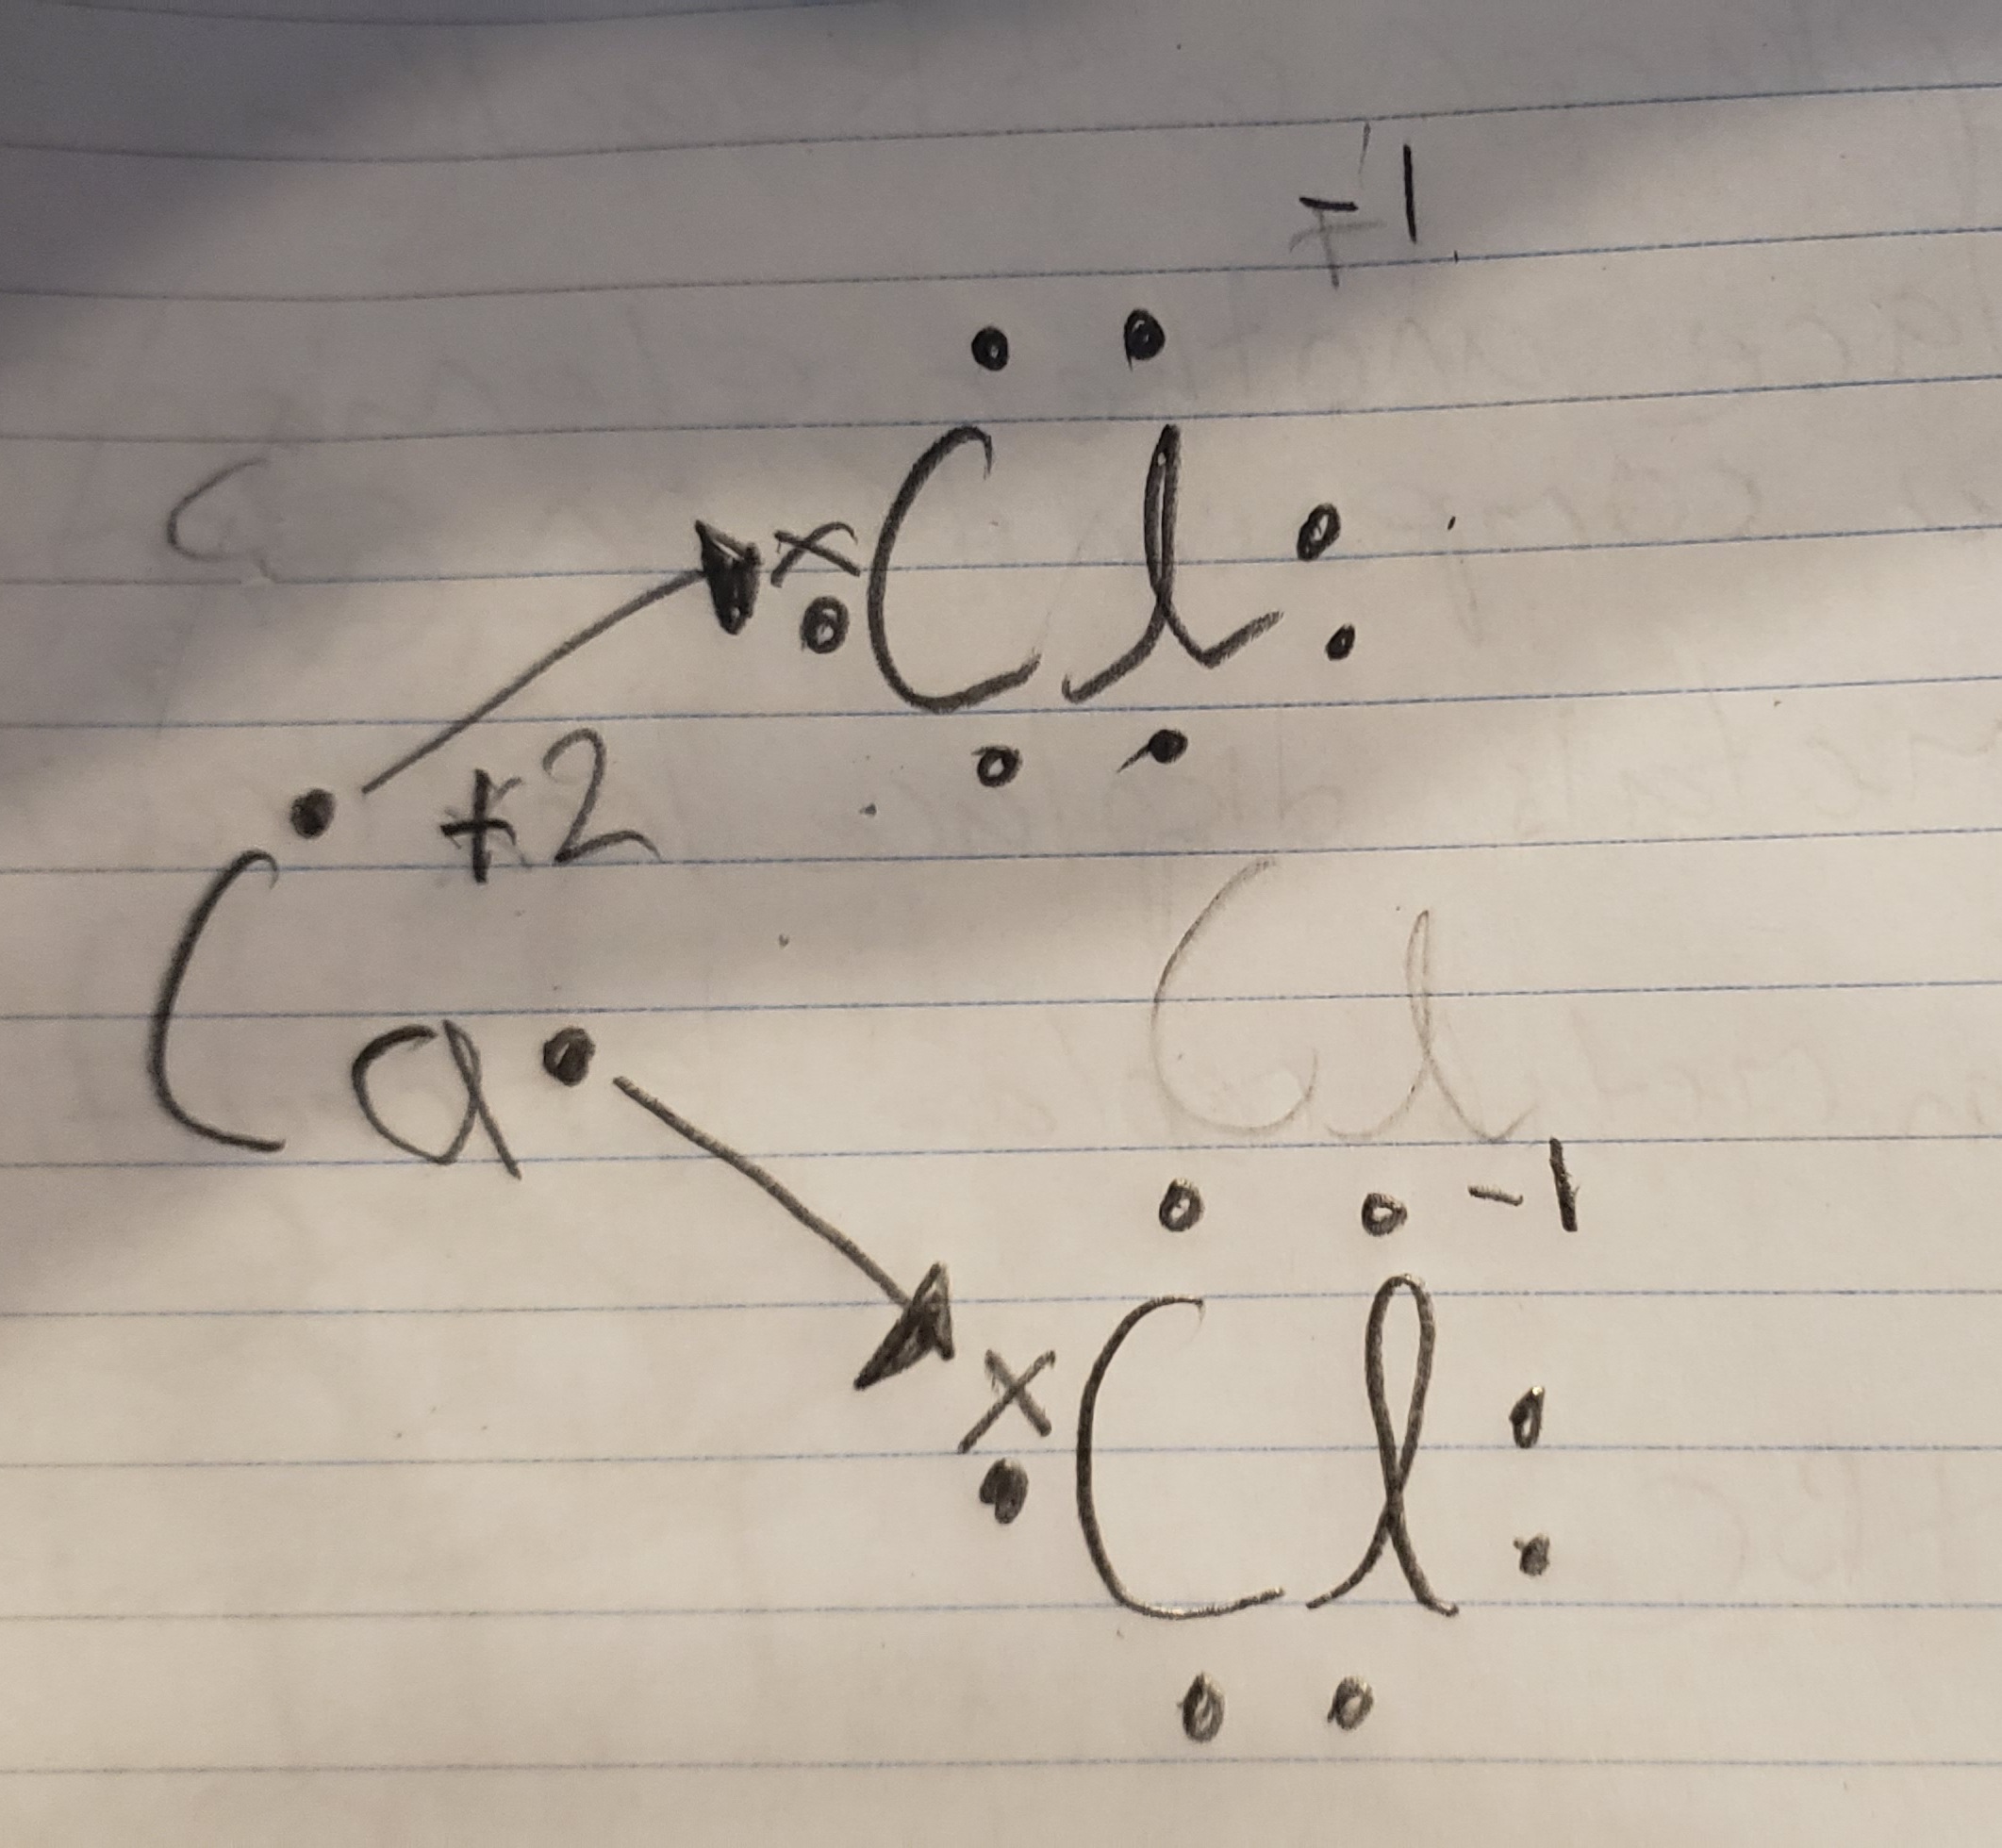 -1
Cl
+2
Ca
Cl
-1
Cl